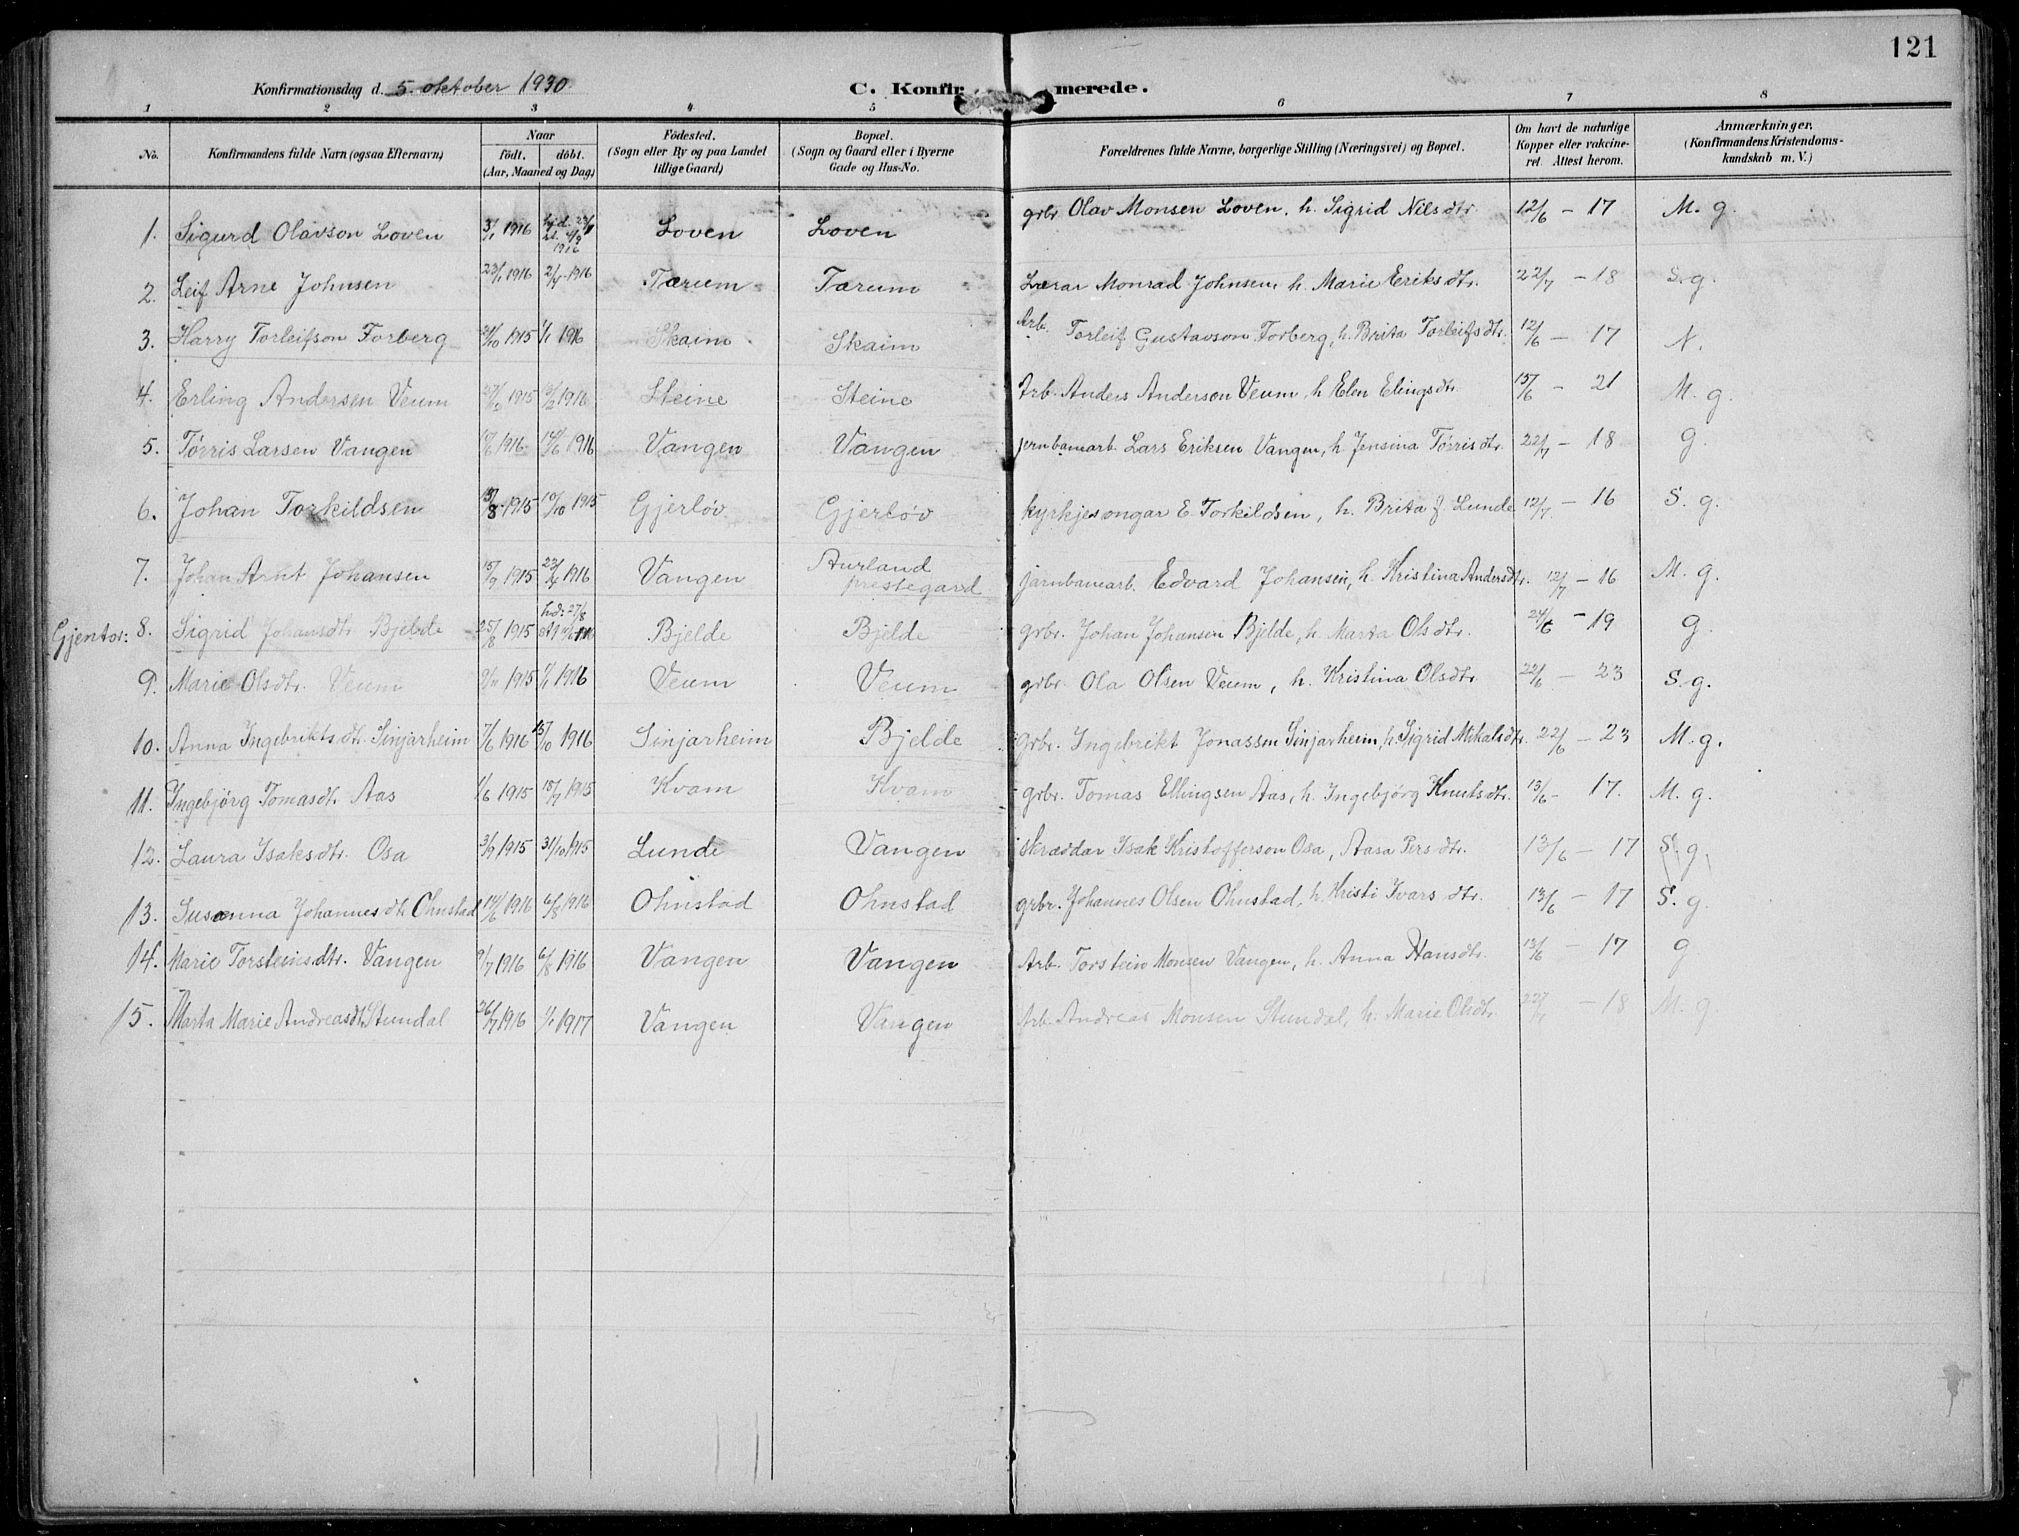 121
Konfirmationsdag d. 5. oktober 1930.
C. Konfir merede.
1 2 3 4 5 6 7 8
No. Konfirmandens fulde Navn (ogsaa Efternavn) Naar födt. döbt. (Aar, Maaned og Dag) Födested. (Sogn eller By og paa Landet tillige Gaard) Bopæl. (Sogn og Gaard eller i Byerne Gade og Hus-No. Forældrenes fulde Navne, borgerlige Stilling (Næringsvei) og Bopæl. Om havt de naturlige Kopper eller vakcineret. Attest herom. Anmærkninger. (Konfirmandens Kristendomskundskab m. V.)
1. Sigurd Olavson Loven 3/1 1916 1916 Loven Loven grbr. Olav Monsen Loven, h. Sigrid Nilsdtr. 12/6 - 17 M. g.
2. Leif Arne Johnsen 23/1 1916 2/4 1916 Tærum Tærum Lærar Monrad Johnsen, h. Marie Eriksdtr. 22/7 - 18 S. g.
3. Harry Torleifson Forberg 1915 1/1 1916 Skaim Skaim Arb. Torleif Gustavson Forberg, h. Brita Torleifsdtr. 12/6 - 17 N.
4. Erling Andersen Veum 1915 1916 Steine Steine Arb. Anders Anderson Veum, h. Elen Elingsdtr. 15/6 - 21 M. g.
5. Tørris Larsen Vangen 1916 1916 Vangen Vangen jernbanearb. Lars Eriksen Vangen, h. Jensina Tørrisdtr. 22/7 - 18 g
6. Johan Torkildsen 1915 10/10 1915 Gjerløv Gjerløv kyrkjesongar E. Torkildsen, h. Brita f. Lunde 12/7 - 16 S. g.
7. Johan Arnt Johansen 15/9 1915 23/4 1916 Vangen Aurland prestegard jarnbanearb. Edvard Johansen, h. Kristina Andersdtr. 12/7 - 16 M. g.
Gjentor: 8. Sigrid Johansdtr Bjelde 25/8 1915 hd: 27/8 Bjelde Bjelde grbr. Johan Johansen Bjelde, h. Marta Olsdtr. 24/6 - 19 g.
9. Marie Olsdtr. Veum 1915 1/1 1916 Veum Veum grbr. Ola Olsen Veum, h. Kristina Olsdtr. 22/6 - 23 S. g.
10. Anna Ingebriktsdtr. Sinjarheim 7/6 1916 15/10 1916 Sinjarheim Bjelde grbr. Ingebrikt Jonassen Sinjarheim, h. Sigrid Mikalsdtr. 22/6 - 23 M. g.
11. Ingebjörg Tomasdtr. Aas 1/6 1915 18/7 1915 Kvam Kvam grbr. Tomas Ellingsen Aas, h. Ingebjörg Knutsdtr. 13/6 - 17. M. g.
12. Laura Isaksdtr. Osa 3/9 1915 31/10 1915 Lunde Vangen skræddar Isak Kristofferson Osa, Aasa Persdtr. 13/6 - 17 S. g.
13. Susanna Johannesdtr Ohnstad 14/6 1916 6/8 1916 Ohnstad Ohnstad grbr. Johannes Olsen Ohnstad, h. Kristi Ivarsdtr. 13/6 - 17 S. g.
14. Marie Torsteinsdtr. Vangen 9/7 1916 6/8 1916 Vangen Vangen Arb. Torstein Monsen Vangen, h. Anna Hansdtr. 13/6 - 17 g
15. Marta Marie Andreasdtr. Stundal 26/7 1916 1/1 1917 Vangen Vangen Arb. Andreas Monsen Stundal, h. Marie Olsdtr. 22/7 - 18 M. g.